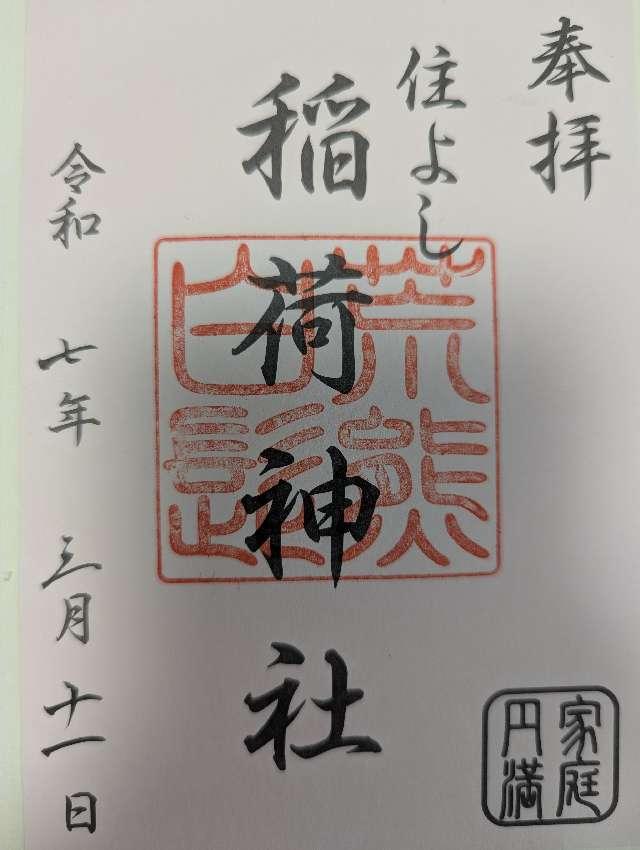 奉拝
住よし
稲荷神社
荒熊
白髭
令和七年三月十一日
家庭
円満